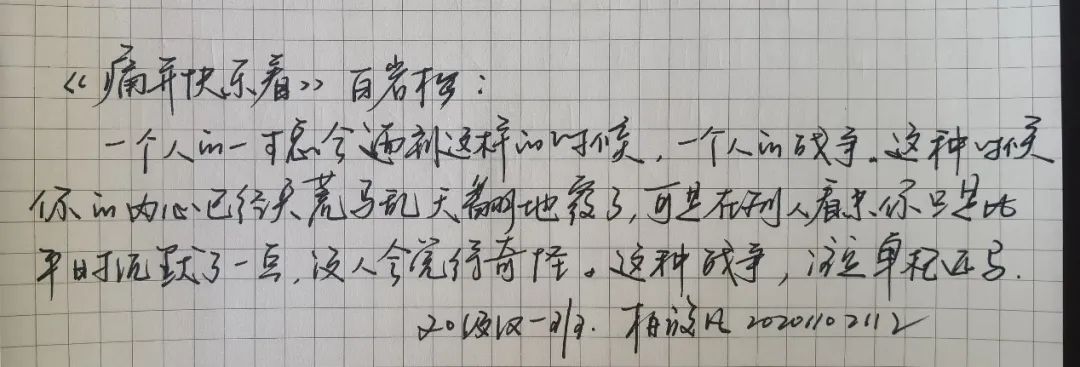 《痛并快乐着》白岩松：
一个人的一生总会遇到这样的时候，一个人的战争。这种时候
你的内心已经兵荒马乱天翻地覆了，可是在别人看来你只是比
平时沉默了一点，没人会觉得奇怪。这种战争，注定单枪匹马.
20级汉一班. 20201102112